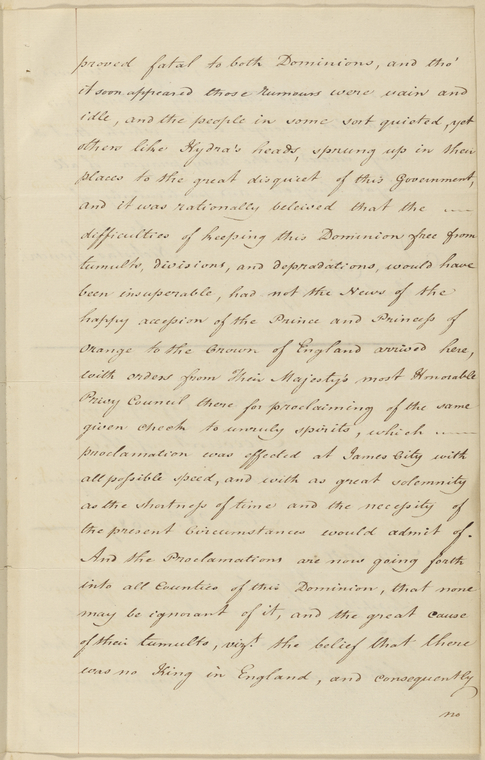 proved fatal to both Dominions, and tho'
it soon appeared those rumours were vain and
idle, and the people in some sort quieted, yet
others like Hydra's heads, sprung up in their
places to the great disquiet of this Government,
and it was rationally beleived that the ——
difficulties of keeping this Dominion free from
tumults, divisions, and depradations, would have
been insuperable, had not the News of the
happy accession of the Prince and Princess of
Orange to the Crown of England arrived here,
with orders from Their Majesty's most Honorable
Privy Council there for proclaiming of the same
given check to unruly spirits, which ——
proclamation was effected at James City with
all possible speed, and with as great solemnity
as the shortness of time and the necessity of
the present Circumstances would admit of.
And the Proclamations are now going forth
into all Counties of this Dominion, that none
may be ignorant of it, and the great cause
of their tumults, vizt. the belief that there
was no King in England, and consequently
no